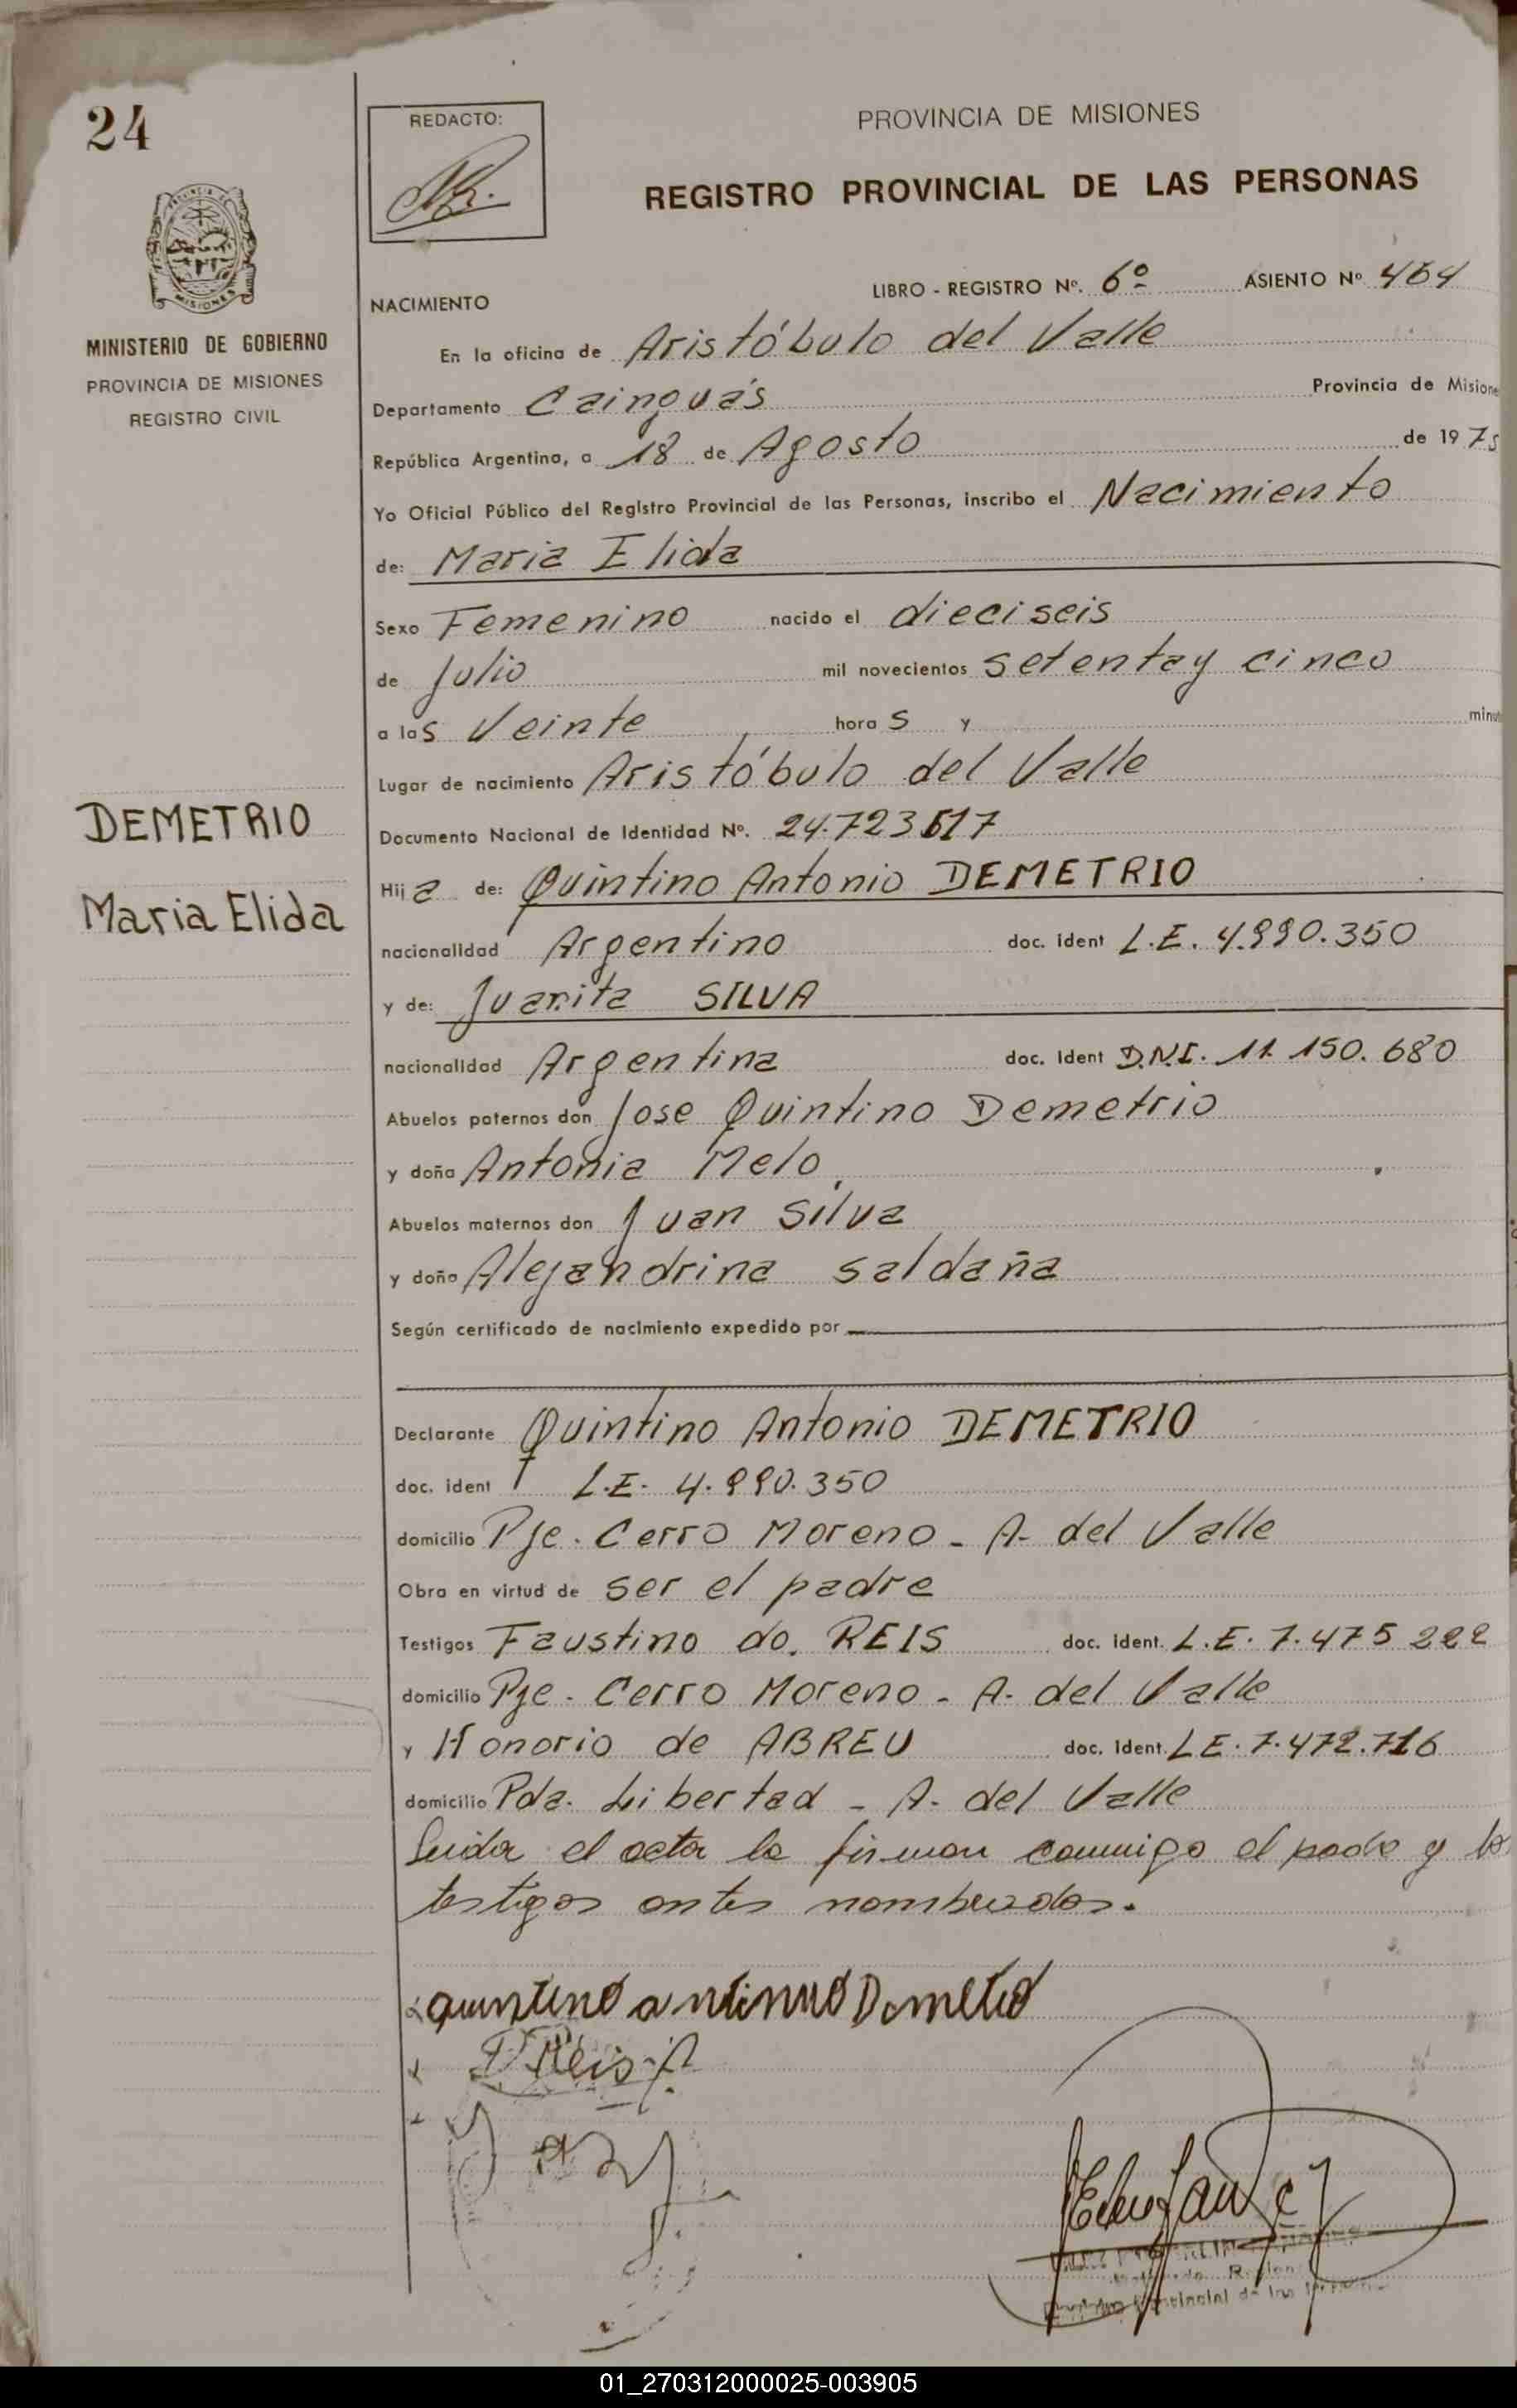 24
REDACTO:
PROVINCIA DE MISIONES
REGISTRO PROVINCIAL DE LAS PERSONAS
MISIONES
MINISTERIO DE GOBIERNO
PROVINCIA DE MISIONES
REGISTRO CIVIL
LIBRO - REGISTRO Nº. 6º ASIENTO Nº 464
NACIMIENTO
En la oficina de Aristóbulo del Valle
Departamento Cainguás Provincia de Misione
República Argentina, a 18 de Agosto de 1975
Yo Oficial Público del Registro Provincial de las Personas, inscribo el Nacimiento
de: Maria Elida
Sexo Femenino nacido el dieciseis
de Julio mil novecientos setenta y cinco
a las Veinte horas y minut
Lugar de nacimiento Aristóbulo del Valle
DEMETRIO
Maria Elida
Documento Nacional de Identidad Nº. 24.723.617
Hija de: Quintino Antonio DEMETRIO
nacionalidad Argentino doc. ident L.E. 4.990.350
y de: Juanita SILVA
nacionalidad Argentina doc. Ident D.N.I. 11.150.680
Abuelos paternos don Jose Quintino Demetrio
y doña Antonia Melo
Abuelos maternos don Juan Silva
y doña Alejandrina Saldaña
Según certificado de nacimiento expedido por
Declarante Quintino Antonio DEMETRIO
doc. ident L.E. 4.990.350
domicilio Pje. Cerro Moreno - A. del Valle
Obra en virtud de ser el padre
Testigos Faustino do. REIS doc. ident. L.E. 7.475.222
domicilio Pje. Cerro Moreno - A. del Valle
y Honorio de ABREU doc. Ident. L E. 7.472.716
domicilio Pda. Libertad - A. del Valle
Leida el acta la firman conmigo el padre y los
testigos antes nombrados.
quintino antinno Demetrio
Reis
Provincial de las
01_270312000025-003905